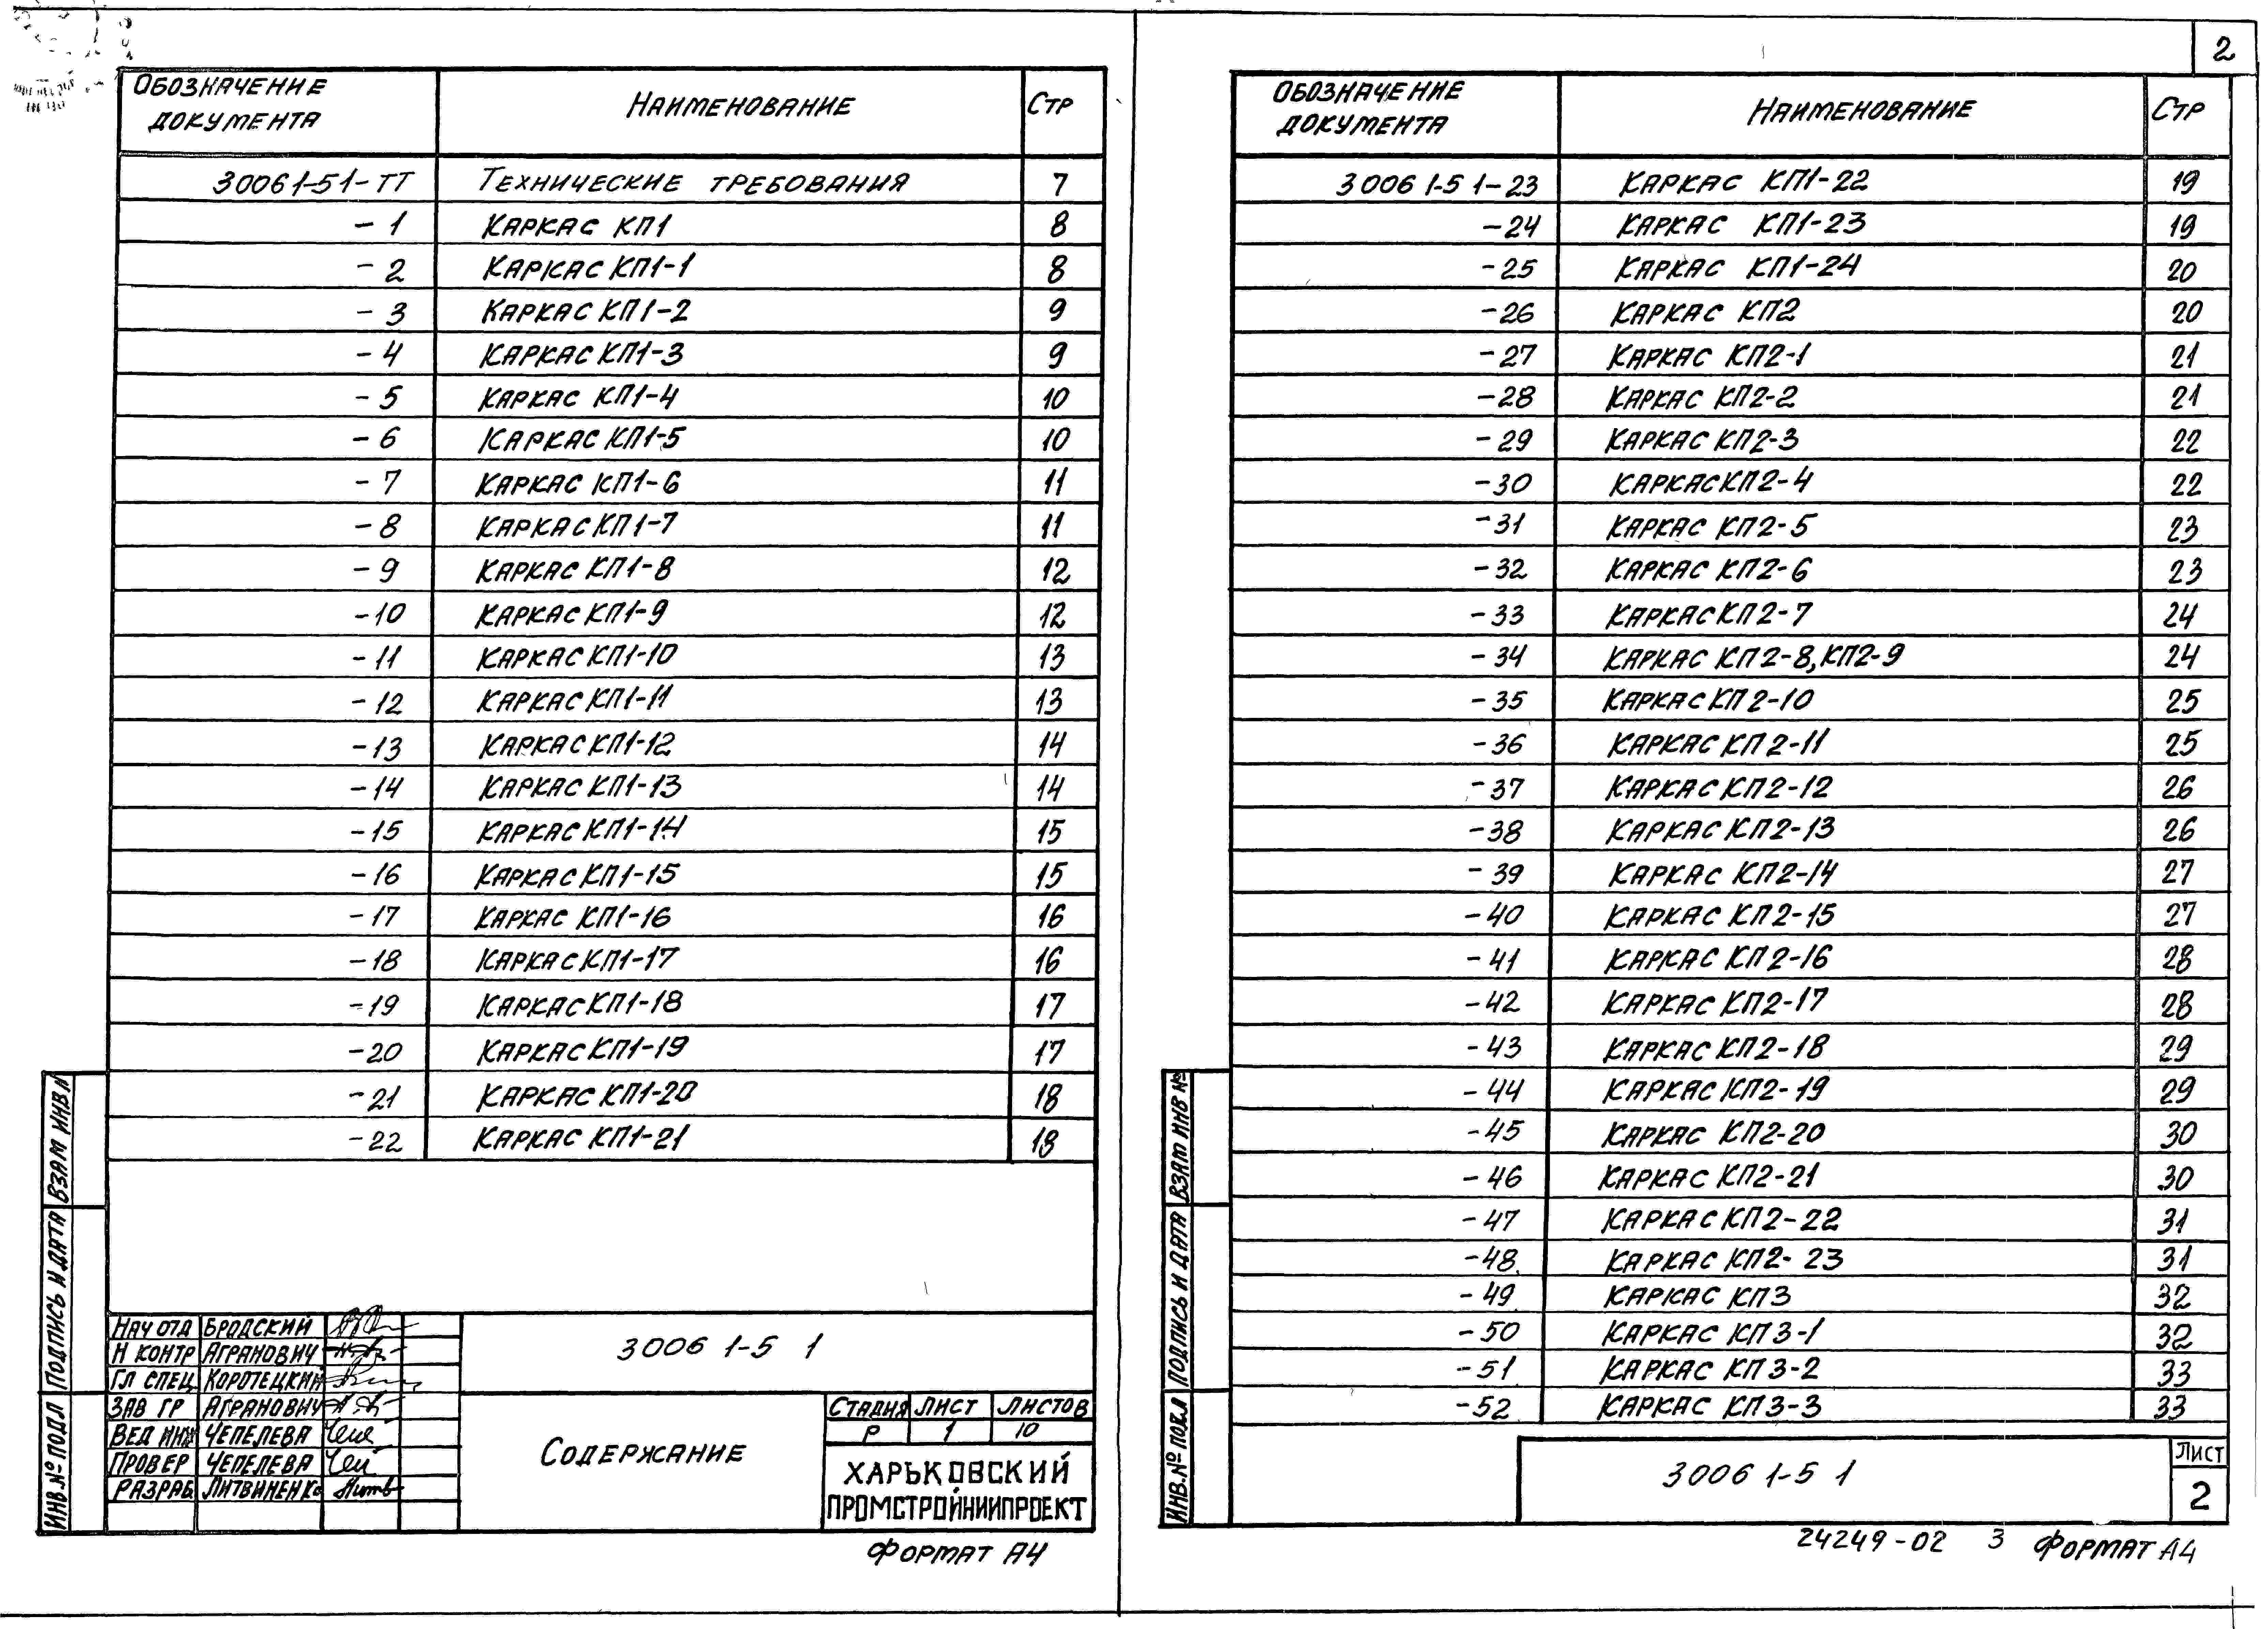 ОБОЗНАЧЕНИЕ ДОКУМЕНТА НАИМЕНОВАНИЕ СТР
3006 1-5 1-ТТ ТЕХНИЧЕСКИЕ ТРЕБОВАНИЯ 7
-1 КАРКАС КП1 8
-2 КАРКАС КП1-1 8
-3 КАРКАС КП1-2 9
-4 КАРКАС КП1-3 9
-5 КАРКАС КП1-4 10
-6 КАРКАС КП1-5 10
-7 КАРКАС КП1-6 11
-8 КАРКАС КП1-7 11
-9 КАРКАС КП1-8 12
-10 КАРКАС КП1-9 12
-11 КАРКАС КП1-10 13
-12 КАРКАС КП1-11 13
-13 КАРКАС КП1-12 14
-14 КАРКАС КП1-13 14
-15 КАРКАС КП1-14 15
-16 КАРКАС КП1-15 15
-17 КАРКАС КП1-16 16
-18 КАРКАС КП1-17 16
-19 КАРКАС КП1-18 17
-20 КАРКАС КП1-19 17
-21 КАРКАС КП1-20 18
-22 КАРКАС КП1-21 18
ИНВ.№ ПОДЛ ПОДПИСЬ И ДАТА ВЗАМ ИНВ.№
НАЧ ОТД БРОДСКИЙ
Н КОНТР АГРАНОВИЧ
ГЛ СПЕЦ КОРОТЕЦКИЙ
ЗАВ ГР АГРАНОВИЧ
ВЕД ИНЖ ЧЕПЕЛЕВА
ПРОВЕР ЧЕПЕЛЕВА
РАЗРАБ ЛИТВИНЕНКО
3006 1-5 1
СОДЕРЖАНИЕ
СТАДИЯ ЛИСТ ЛИСТОВ
Р 1 10
ХАРЬКОВСКИЙ
ПРОМСТРОЙНИИПРОЕКТ
ФОРМАТ А4
2
ОБОЗНАЧЕНИЕ ДОКУМЕНТА НАИМЕНОВАНИЕ СТР
3006 1-5 1-23 КАРКАС КП1-22 19
-24 КАРКАС КП1-23 19
-25 КАРКАС КП1-24 20
-26 КАРКАС КП2 20
-27 КАРКАС КП2-1 21
-28 КАРКАС КП2-2 21
-29 КАРКАС КП2-3 22
-30 КАРКАС КП2-4 22
-31 КАРКАС КП2-5 23
-32 КАРКАС КП2-6 23
-33 КАРКАС КП2-7 24
-34 КАРКАС КП2-8, КП2-9 24
-35 КАРКАС КП2-10 25
-36 КАРКАС КП2-11 25
-37 КАРКАС КП2-12 26
-38 КАРКАС КП2-13 26
-39 КАРКАС КП2-14 27
-40 КАРКАС КП2-15 27
-41 КАРКАС КП2-16 28
-42 КАРКАС КП2-17 28
-43 КАРКАС КП2-18 29
-44 КАРКАС КП2-19 29
-45 КАРКАС КП2-20 30
-46 КАРКАС КП2-21 30
-47 КАРКАС КП2-22 31
-48 КАРКАС КП2-23 31
-49 КАРКАС КП3 32
-50 КАРКАС КП3-1 32
-51 КАРКАС КП3-2 33
-52 КАРКАС КП3-3 33
ИНВ.№ ПОДЛ ПОДПИСЬ И ДАТА ВЗАМ ИНВ №
3006 1-5 1
ЛИСТ
2
24249-02 3 ФОРМАТ А4